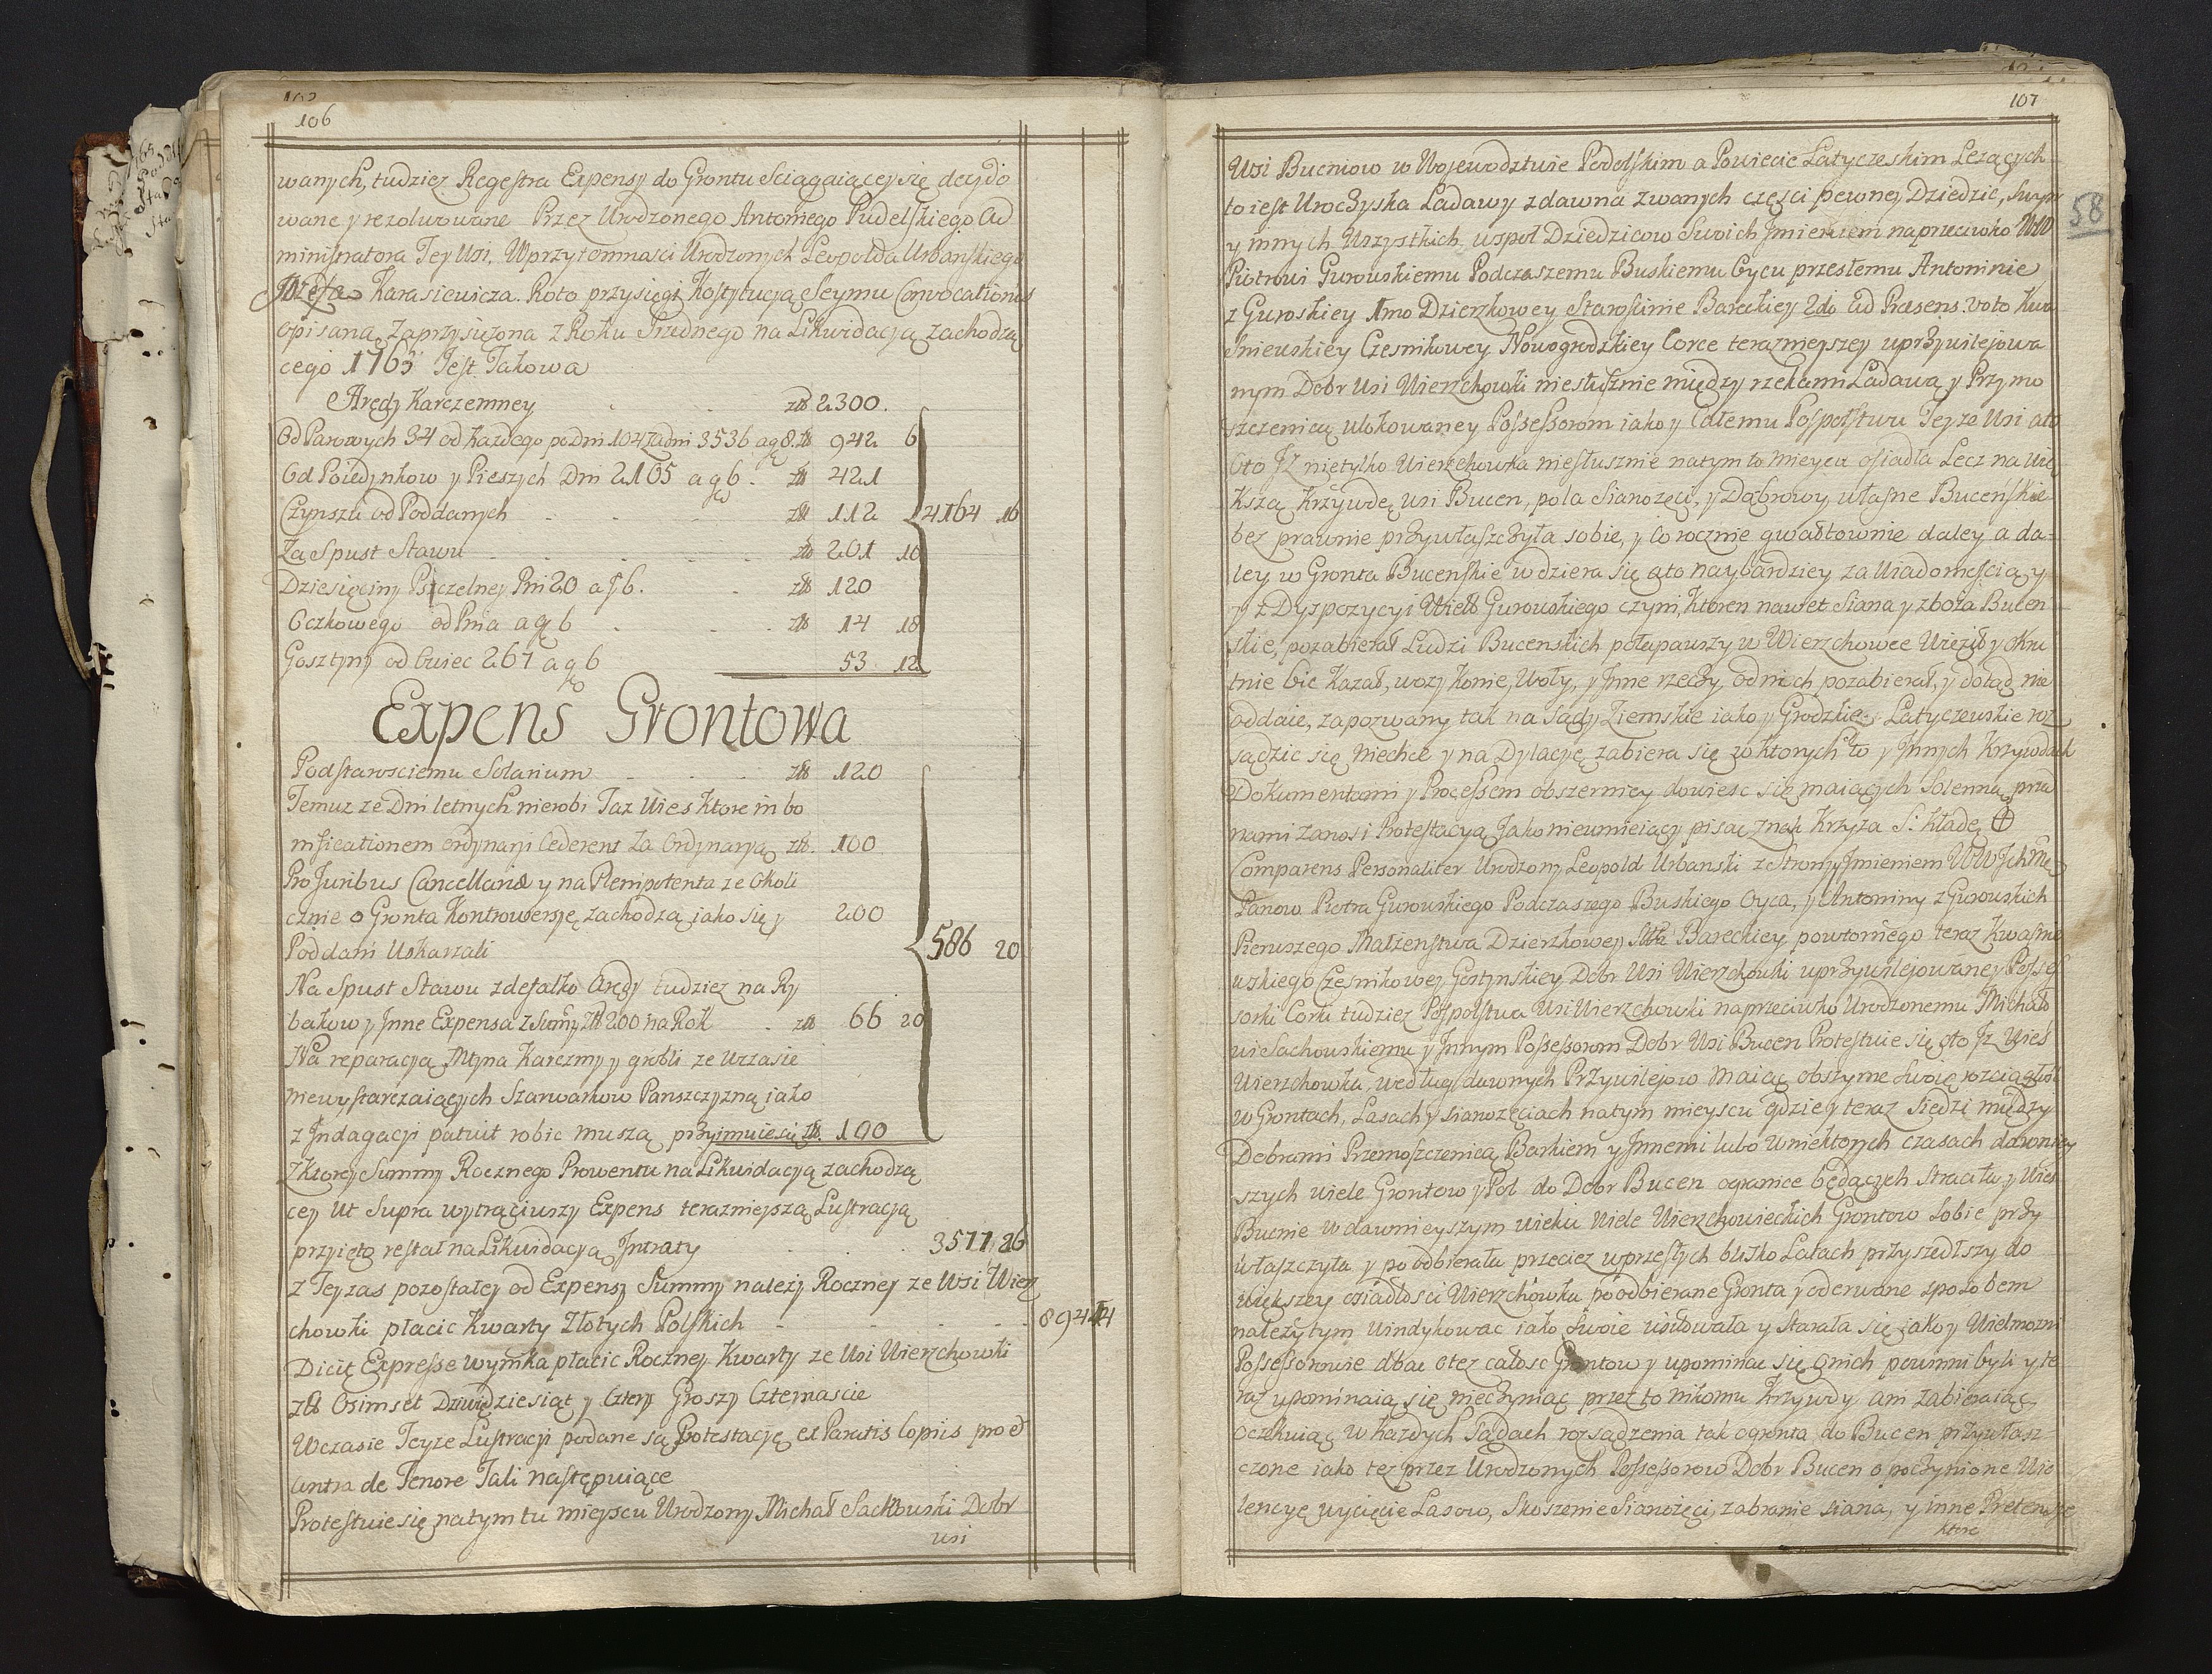 106
wanych, tudziez Regestra Expensy do Grontu Sciągaiącey się decydo
wane y rezolwowane Przez Urodzonego Antoniego Pudelskiego Ad
ministratora Tey Wsi, W przytomnosci Urodzonych Leopolda Urbanskiego
Jozefa Karasiewicza. Roto przysięgi Kostytucyą Seymu Convocationis
opisaną, Zaprzysiężona z Roku Srednego na Likwidacyą zachodzą
cego 1763 Jest Takowa
Arędy Karczemney złł 2300.
Od Parowych 34 od Kazdego po dni 104 Za dni 3536 a gł 8. złł 942 6
Od Poiedynkow y Pieszych Dni 2105 a g 6. złł 421
Czynszu od Poddanych złł 112 4164 16
Za Spust Stawu złł 201 10
Dziesięciny Pszczelney Pni 20 a f 6. złł 120
Oczkowego od Pnia a g 6 złł 14 18
Gosztyny od Owiec 267 a g 6 53 12
Expens Grontowa
Podstarosciemu Solarium złł 120
Temuz ze Dni letnych nierobi Taz Wies Ktore in bo
nificationem ordynaryi Cederent Za Ordynaryą złł. 100
Pro Juribus Cancellariæ y na Plenipotenta ze Okoli
cznie o Gronta Kontrowersye zachodzą iako się y 200
Poddani Uskarzali 586 20
Na Spust Stawu z defalko Arędy tudziez na Ry
bakow y Inne Expensa z Summy złł 200 na Rok złł 66 20
Na reparacyą Młyna Karczmy y grobli ze Wczasie
niewystarczaiących Szarwarkow Panszczyzną iako
z Indagacyi patuit robic muszą przyimuie się złł. 100
Z Ktorey Summy Rocznego Prowentu na Likwidacyą zachodzą
cey Ut Supra wytrąciwszy Expens terazniejszą Lustracyą
przyiętą restat na Likwidacyą Intraty 3577 26
z Teyzas pozostałey od Expensy Summy nalezy Roczney ze Wsi Wierz
chowki płacic Kwarty Złotych Polskich 894 14
Dicit Expresse wynika płacic Roczney Kwarty ze Wsi Wierzchowki
złł Osimset Dziewiędziesiąt y Cztery Groszy Czternascie
W czasie Teyze Lustracyi podane są Protestacye ex Paratis Copiis pro et
Contra de Tenore Tali następuiące
Protestuie się na tym tu mieyscu Urodzony Michał Sachowski Dobr
wsi
107
58
Wsi Bucniow w Wojewodztwie Podolskim a Powiecie Latyczeskim Lezących
to iest Uroczyska Ladawy zdawna zwanych części pewney Dziedzic, Swym
y innych Wszystkich wspoł Dziedzicow Swoich Jmieniem naprzeciwko WW
Piotrowi Gurowskiemu Podczaszemu Buskiemu Oycu przesłemu Antoninie
z Gurowskiey 1mo Dzierzkowey Starosčinie Bareckiey 2do ad Præsens voto Kwa
sniewskiey Czesnikowey Nowogrodzkiey Corce terazniejszey uprzywilejowa
nym Dobr Wsi Wierzchowki niesłusznie między rzekami Ladawą y Przymo
szczenicą ulokowaney Possessorom iako y Całemu Pospolstwu Teyze Wsi oto
Oto Iz nietylko Wierzchowka niesłusznie na tym to mieyscu osiadła Lecz na Wię
kszą Krzywdę wsi Bucen, pola Sianozęci, y Dąbrowy własne Buceńskie
bez prawnie przywłaszczyła sobie, y Corocznie gwałtownie daley a da=
ley w Gronta Bucenskie wdziera się a to naybardziey za Wiadomoscią y
y z Dyspozycyi Wiell Gurowskiego czyni, Ktoren nawet Siana y zboża Bucen
skie, pozabierał Ludzi Bucenskich połapawszy w Wierzchowce Więził y okru
tnie bic Kazał, wozy Konie, Woły, y Inne rzeczy od nich pozabierał, y dotąd nie
oddaie, zapozwany tak na Sądy Ziemskie iako y Grodzkie Latyczewskie roz
sądzic się niechce y na Dylacyę zabiera się o ktorych to y Innych Krzywdach
Dokumentami y Processem obszerniey dowiesc się maiących Solenną pra
wami zanosi Protestacyą Jako nieumieiący pisac Znak Krzyza S: Kładę ⊕
Comparens Personaliter Urodzony Leopold Urbanski ze Strony Jmieniem WW Jchmc
Panow Piotra Gurowskiego Podczaszego Buskiego Oyca, y Antoniny z Gurowskich
Pierwszego Małzenstwa Dzierzkowey Sttii Bareckiey powtornego teraz Kwasnie
wskiego Czesnikowey Gostynskiey Dobr Wsi Wierzchowki uprzywilejowaney Posses
sorki Corki tudziez Pospolstwa Wsi Wierzchowki naprzeciwko Urodzonemu Michało
wi Sachowskiemu y Innym Possessorom Dobr Wsi Bucen Protestuie się oto Iz Wies
Wierzchowka, według dawnych Przywilejow maiąc obszyrne Swoie rozciągłosci
w Grontach, Lasach y sianozęciach na tym mieyscu gdzie y teraz Siedzi między
Dobrami Przemoszczenicą Barkiem y Innemi lubo w niektorych czasach dawniey
szych wiele Grontow y Pol do Dobr Bucen ogranice będących Straciła y Wies
Bucnie w dawnieyszym wieku Wiele Wierzchowieckich Grontow Sobie przy
właszczyła y poodbierała przeciez w przesłych blisko Latach przyszedłszy do
większey osiadłosci Wierzchowka poodbierane Gronta y oderwane sposobem
nalezytym Windykowac iako Swoie usiłowała y Starała się iako y Wielmozni
Possessorowie dbac otez całosc Grontow y upominac się o nich powinni byli y te
raz upominaią się nieczyniąc przez to nikomu Krzywdy ani zabieraiąc
Oczekuiąc w Kazdych Sądach rozsądzenia tak o gronta do Bucen przywłasz
czone iako tez przez Urodzonych Possessorow Dobr Bucen o poczynione Wio
lencye wycięcie Lasow, Skoszenie Sianozęci, zabranie siana, y inne Pretensye
ktore